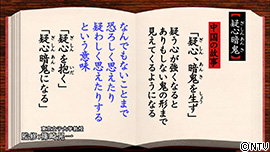 【疑心暗鬼】
ぎしんあんき
中国の故事
「疑心、暗鬼を生ず」
疑う心が強くなると
ありもしない鬼の形まで
見えてくるようになる
なんでもないことまで
恐ろしく思えたりする
疑わしく思えたりする
という意味
「疑心を抱く」
「疑心暗鬼になる」
©NTU